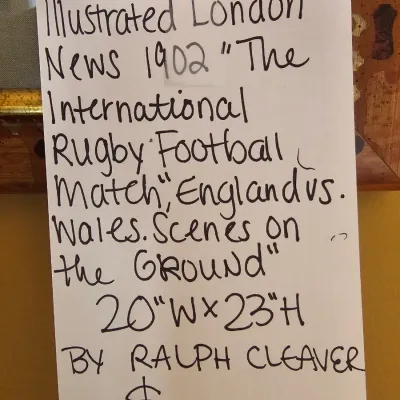 Illustrated London
News 1902 "The
International
Rugby Football
Match", England vs.
Wales. Scenes on
the GROUND"
20"W x 23"H
BY RALPH CLEAVER
$